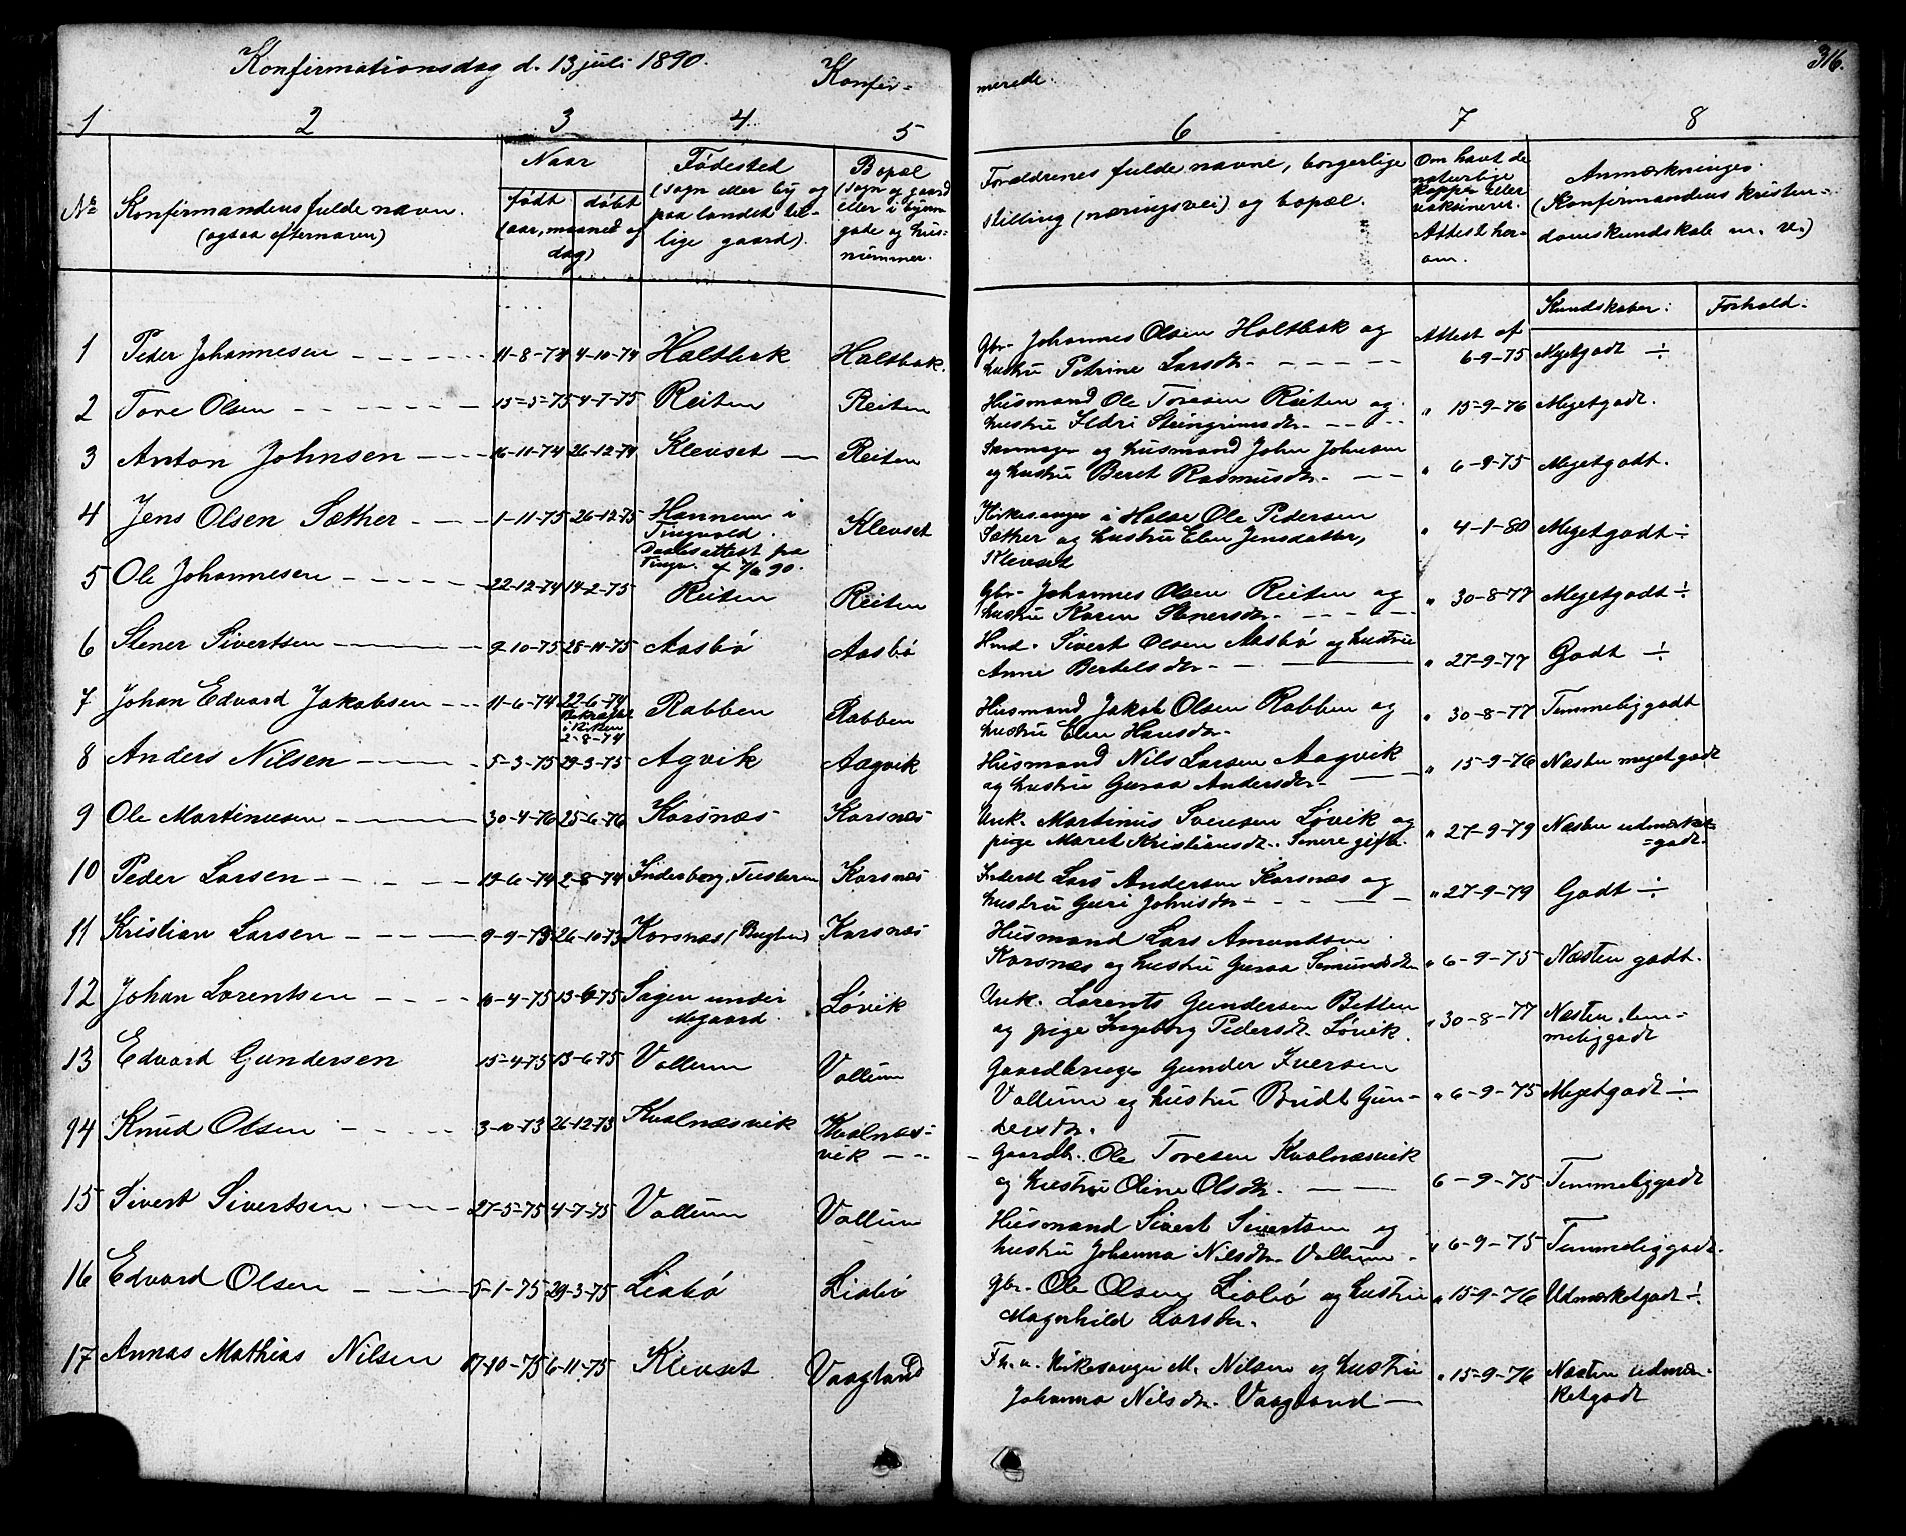 316.
Konfirmationsdag d. 13 juli 1890.
Konfir-
merede
1 2 3 4 5 6 7 8
No
Konfirmandens fulde navn.
(ogsaa efternavn)
Naar
født døbt
(aar, maaned og
dag)
Fødested
(sogn eller by og
paa landet til-
lige gaard).
Bopæl
(sogn og gaard
eller i byen
gade og hus-
nummer.
Forældrenes fulde navne, borgerlige
stilling (næringsvei) og bopæl.
Om havt de
naturlige
kopper eller
vaksineret.
Attest her-
om.
Anmærkninger.
(Konfirmandens kristen-
domskundskab m. v.)
Kundskaber: Forhold:
1 Peder Johannesen 11-8-74 4-10-74 Haltbak Haltbak.
gbr. Johannes Olsen Haltbak og
hustru Petrine Larsdtr.
Attest af
6-9-75 Megetgodt ÷
2 Tore Olsen 15-5-75 4-7-75 Reiten Reiten
Husmand Ole Toresen Reiten og
hustru Ildri Steingrimsdtr.
" 15-9-76 Megetgodt.
3 Anton Johnsen 16-11-74 26-12-74 Klevset Reiten
og husmand John Johnsen
og hustru Beret Rasmusdtr.
" 6-9-75 Megetgodt.
4 Jens Olsen Sæther 1-11-75 26-12-75 Hannem i
Tingvold.
Daabsattest fra
Tingv. af 7/6 90.
Klevset
Kirkesanger i Halse Ole Pedersen
Sæther og hustru Elen Jensdatter,
Klevset
" 4-1-80 Megetgodt ÷
5 Ole Johannesen 22-12-74 14-2-75 Reiten Reiten
Gbr. Johannes Olsen Reiten og
hustru Karen Stenersdtr.
" 30-8-77 Megetgodt ÷
6 Stener Sivertsen 9-10-75 28-11-75 Aasbø Aasbø
Hmd. Sivert Olsen Aasbø og hustru
Anne Bertelsdtr.
" 27-9-77 Godt ÷
7 Johan Edvard Jakobsen 11-6-74 22-6-74
Bekræftet
i Kirken
2-8-74
Rabben Rabben
Husmand Jakob Olsen Rabben og
hustru Elen Hansdtr.
" 30-8-77 Temmeliggodt
8 Anders Nilsen 5-3-75 29-3-75 Agvik Aagvik
Husmand Nils Larsen Aagvik
og hustru Guraa Andersdtr.
" 15-9-76 Næsten megetgodt
9 Ole Martinusen 30-4-76 25-6-76 Korsnæs Korsnæs
Unk. Martinus Svensen Løvik og
pige Maret Kristiansdtr. Senere gifte.
" 27-9-79 Næsten udmærket
=godt.
10 Peder Larsen 19-6-74 2-8-74 Inderberg, Tusteren Korsnæs
Inderst Lars Andersen Korsnæs og
hustru Guri Johnsdtr
" 27-9-79 Godt ÷
11 Kristian Larsen 9-9-73 26-10-73 Korsnæs (Bugten) Korsnæs
Husmand Lars Amundsen
Korsnæs og hustru Guraa Semundsdtr
" 6-9-75 Næsten godt.
12 Johan Lorentsen 6-4-75 13-6-75 Sagen under
Megaard.
Løvik
Unk. Lorents Gundersen Botten
og pige Ingeborg Pedersdt. Løvik.
" 30-8-77 Næsten tem-
meliggodt
13 Edvard Gundersen 15-4-75 13-6-75 Vollum Vollum
Gaardbruger Gunder Iversen
Vollum og hustru Brudt Gun-
dersdtr.
" 6-9-75 Megetgodt ÷
14 Knud Olsen 3-10-73 26-12-73 Kvalnæsvik Kvalnæs-
vik
Gaardb. Ole Toresen Kvalnæsvik
og hustru Oline Olsdtr.
6-9-75 Temmeliggodt
15 Sivert Sivertsen 27-5-75 4-7-75 Vollum Vollum
Husmand Sivert Sivertsen og
hustru Johanna Nilsdtr. Vollum
" 6-9-75 Temmeliggodt.
16 Edvard Olsen 5-1-75 29-3-75 Liabø Liabø
gbr. Ole Olsen Liabø og hustru
Magnhild Larsdtr.
" 15-9-76 Udmærketgodt ÷
17 Annas Mathias Nilsen 17-10-75 6-11-75 Klevset Vaagland
Fh.v. Kirkesanger M. Nilsen og hustru
Johanna Nilsdtr. Vaagland
" 15-9-76 Næsten udmær-
ketgodt